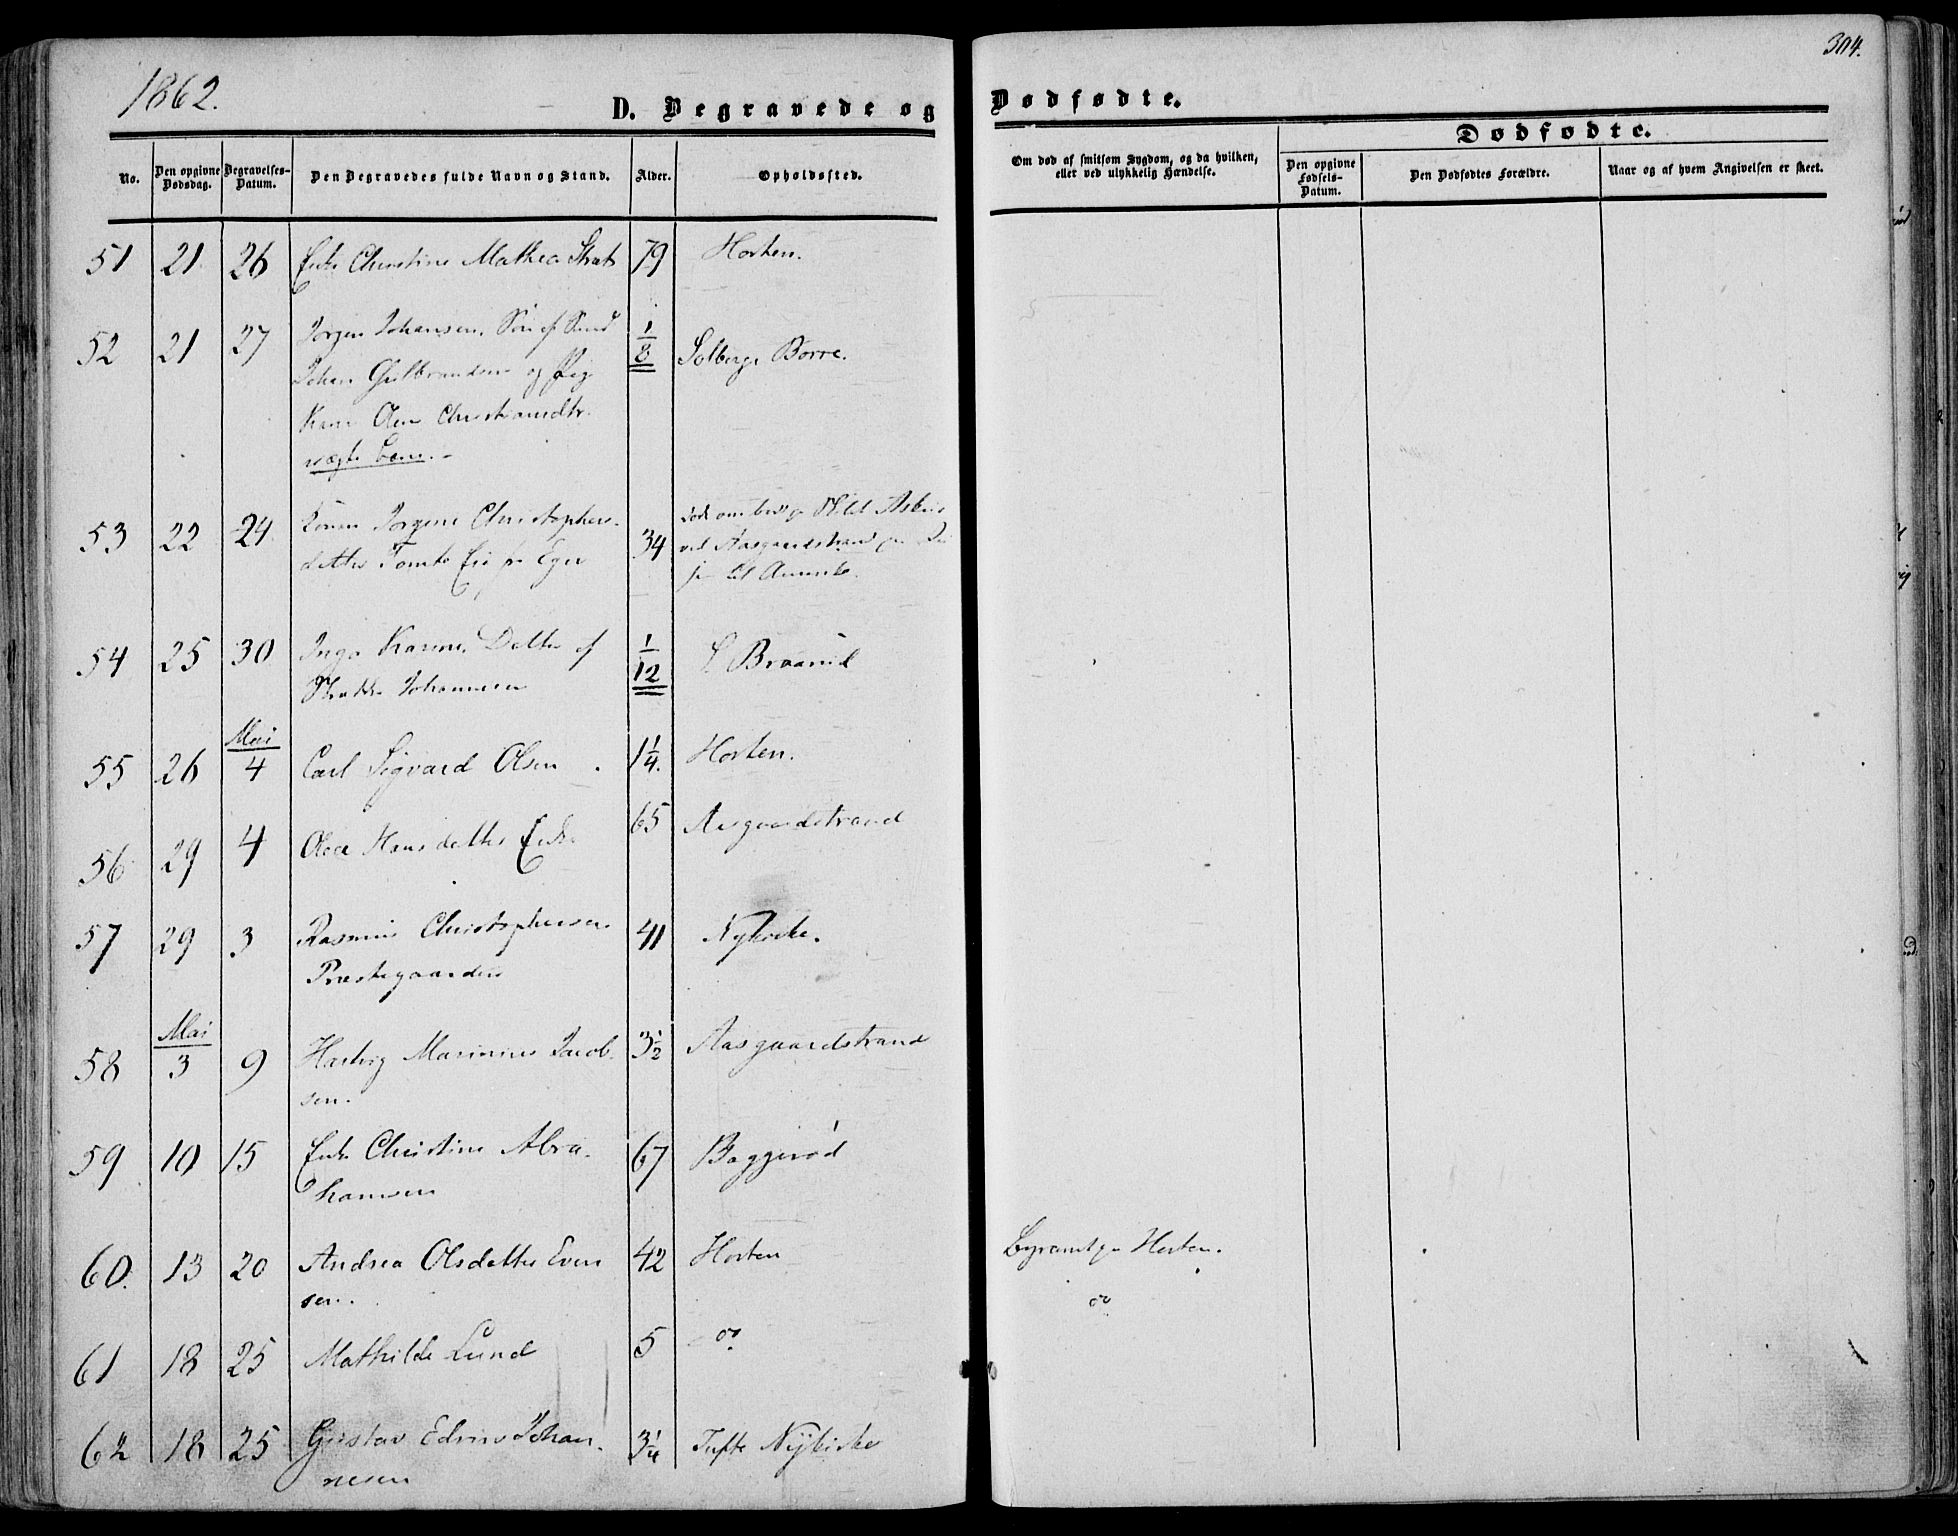 1862.
304.
D. Begravede og Dødfødte.
Dødfødte.
No.
Den opgivne Dødsdag.
Begravelses-Datum.
Den Begravedes fulde Navn og Stand.
Alder.
Opholdssted.
Om død af smitsom Sygdom, og da hvilken, eller ved ulykkelig Hændelse.
Den opgivne Fødsels-Datum.
Den Dødfødtes Forældre.
Naar og af hvem Angivelsen er skeet.
51 21 26 Enke Christine Mathea 79 Horten.
52 21 27 Jørgen Johansen, Søn af 1/8 Solberg Borre.
Johan Gulbrandsen og Pig
Olea Christiansdtr.
uægte Barn.
53 22 24 Konen Jørgine Christophers- 34
datter Eie fra Eger
ved Aasgaardstrand
til Amerika.
54 25 30 Inga Karine, Datter af 1/12
Johannesen
Mai
55 26 4 Carl Sigvard Olsen 1 1/4 Horten.
56 29 4 Olea Hansdatter Enke 65 Aasgaardstrand
57 29 3 Rasmus Christophersen 41 Nykirke.
Præstegaarden
Mai
58 3 9 Hartvig Marinius Jacob- 3 1/2 Aasgaardstrand
sen.
59 10 15 Enke Christine Abra- 67 Baggerød
hamsen
60. 13 20 Andrea Olsdatter Even 42 Horten Horten.
sen.
do
61 18 25 Mathilde Lund 5 do
62 18 25 Gustav Edvin Johan- 3 1/4 Tufte Nykirke
nesen